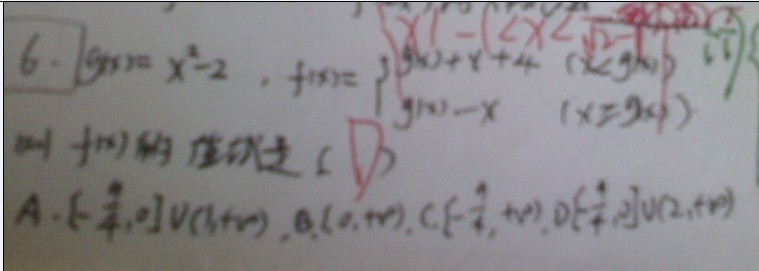 {x|-1<x<
6. g(x)=x²-2, f(x)={g(x)+x+4 (x<g(x))
g(x)-x (x≥g(x))
则 f(x)的值域是(D)
A.[-9/4,0]∪(1,+∞), B.[0,+∞), C.[-9/4,+∞), D.[-9/4,0]∪(2,+∞)